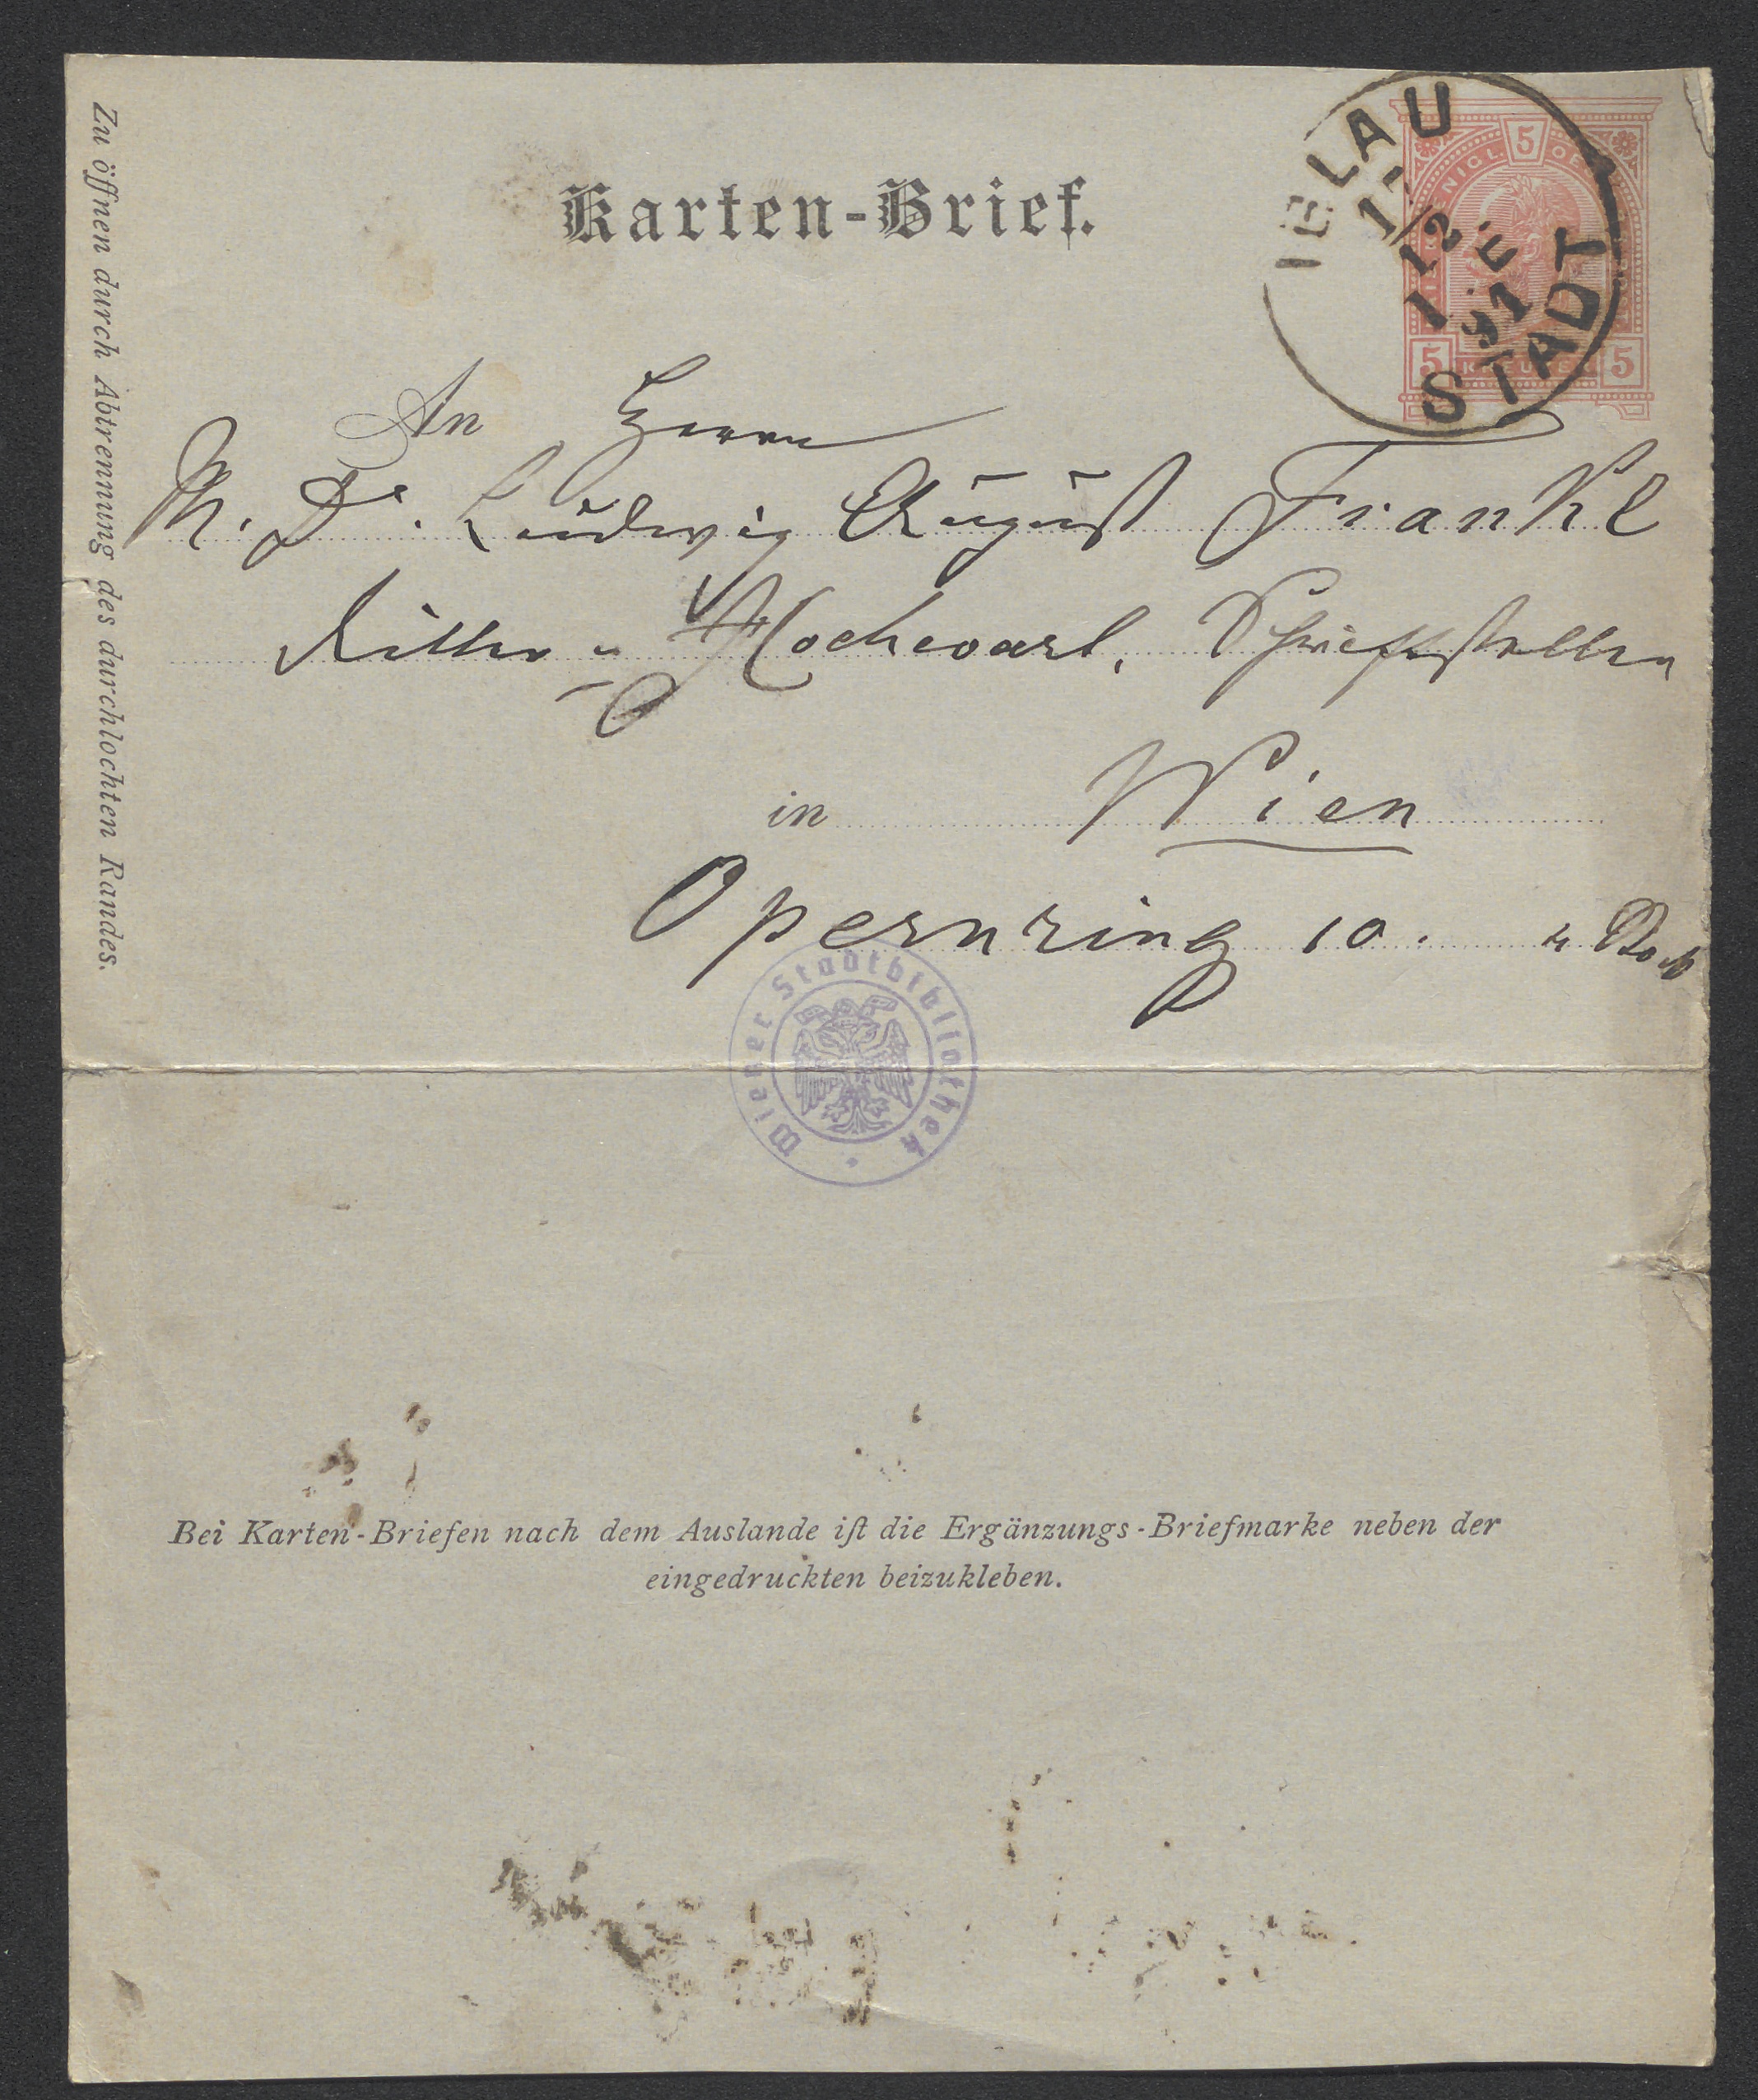 Zu öffnen durch Abtrennung des durchlochten Randes.
Karten-Brief.
5
5 5
IGLAU
STADT
12
91
An Herrn
M. Dr. Ludwig August Frankl
Ritter v Hochwart, Schriftsteller
in Wien
Opernring 10. 4 Stock
Wiener Stadtbibliothek
Bei Karten-Briefen nach dem Auslande iſt die Ergänzungs-Briefmarke neben der
eingedruckten beizukleben.